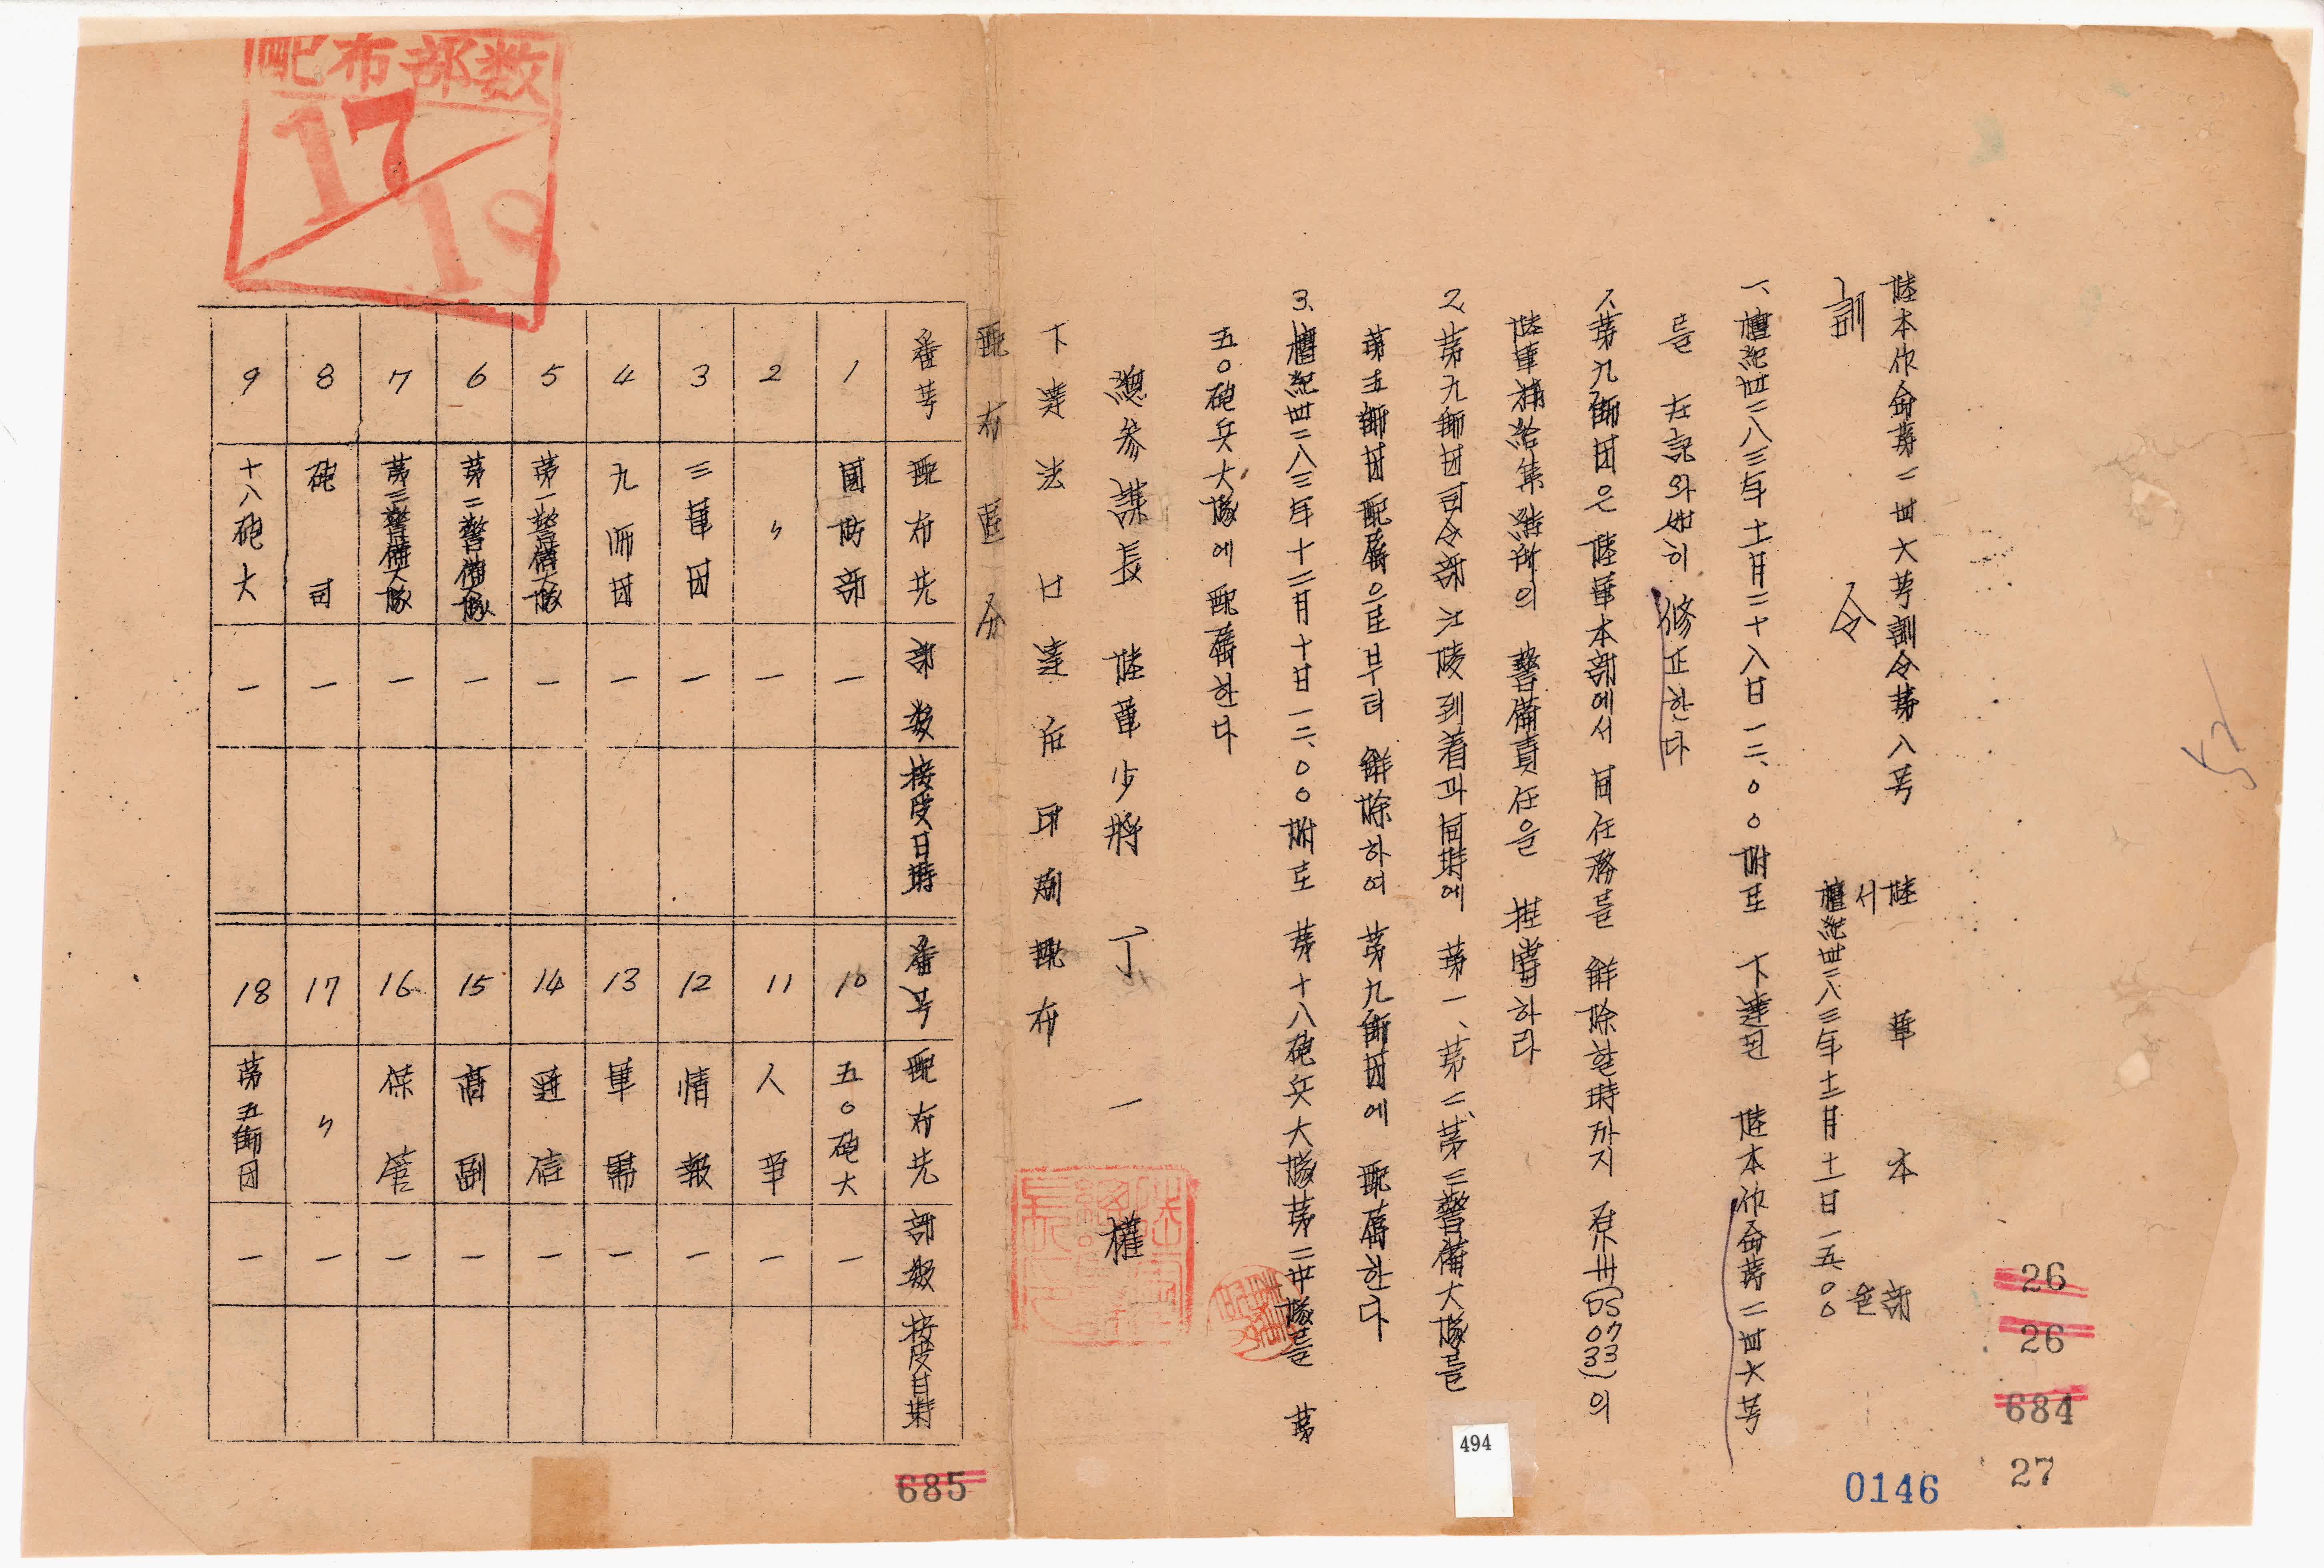 陸本作命第二四六号訓令第八号 陸軍本部
訓令 檀紀四二八三年十二月十一日一五、〇〇
서 울
一、檀紀四二八三年十一月二十八日一二、〇〇附로 下達된 陸本作命第二四六号
를 左記와如히 修正한다
1、第九師団은 陸軍本部에서 同任務를 解除할時까지 原州(DS0733)의
陸軍補給集結所의 警備責任을 担當하라
2、第九師団司令部 江陵到着과同時에 第一、第二、第三警備大隊를
第五師団配属으로부터 解除하여 第九師団에 配属한다
3、檀紀四二八三年十二月十日一二、〇〇附로 第十八砲兵大隊第二中隊를 第
五〇砲兵大隊에配属한다
總参謀長 陸軍少將 丁 一 權
下達法 口達后印刷配布
配布區分
番号 配布先 部数 接受日時 番号 配布先 部数 接受日時
1 國防部 一 10 五〇砲大 一
2 〃 一 11 人事 一
3 三軍団 一 12 情報 一
4 九師団 一 13 軍需 一
5 第一警備大隊 一 14 通信 一
6 第二警備大隊 一 15 高副 一
7 第三警備大隊 一 16 保管 一
8 砲司 一 17 〃 一
9 十八砲大 一 18 第五師団 一
配布部数
17
18
52
26
26
684
27
0146
494
685